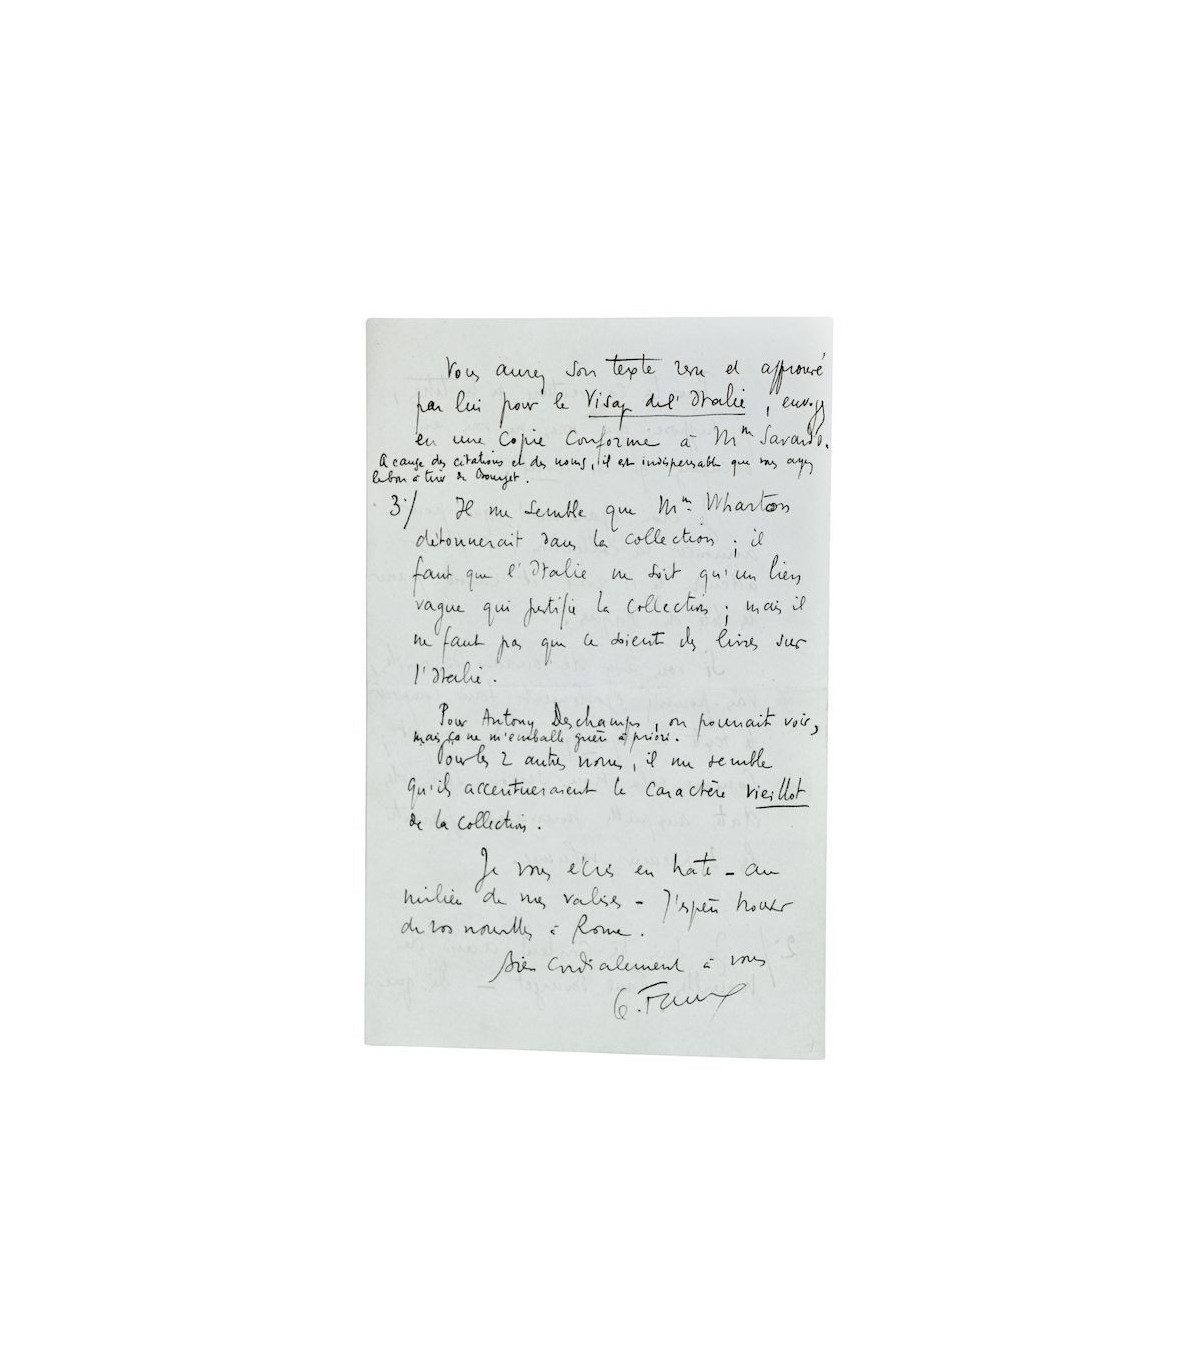 Vous aurez son texte revu et approuvé
par lui pour le Visage de l'Italie, envoyez
en une copie conforme à Mme
A cause des citations et des noms, il est indispensable que vous ayez
le bon à tirer de Bourget.
3°/ Il me semble que Mme Wharton
détonnerait dans la collection ; il
faut que l'Italie ne soit qu'un lien
vague qui justifie la collection ; mais il
ne faut pas que ce soient des livres sur
l'Italie.
Pour Antony Deschamps, on pourrait voir,
mais ça ne m'emballe guère à priori.
Pour les 2 autres noms, il me semble
qu'ils accentueraient le caractère vieillot
de la collection.
Je vous écris en hate – au
milieu de mes valises – J'espère trouver
de vos nouvelles à Rome.
Bien cordialement à vous
G. Faure